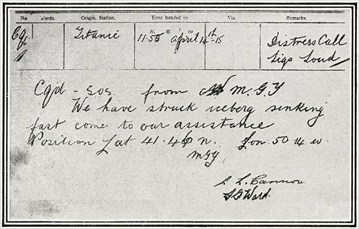 No. Words. Origin. Station. Time handed in Via Remarks.
Titanic 11.55 April 14th-15 Distress Call
Ligs Loud
Cqd - Sos. from M.G.Y
We have struck iceberg sinking
fast come to our assistance
Position Lat 41.46 n. Lon. 50 14 w
MGY